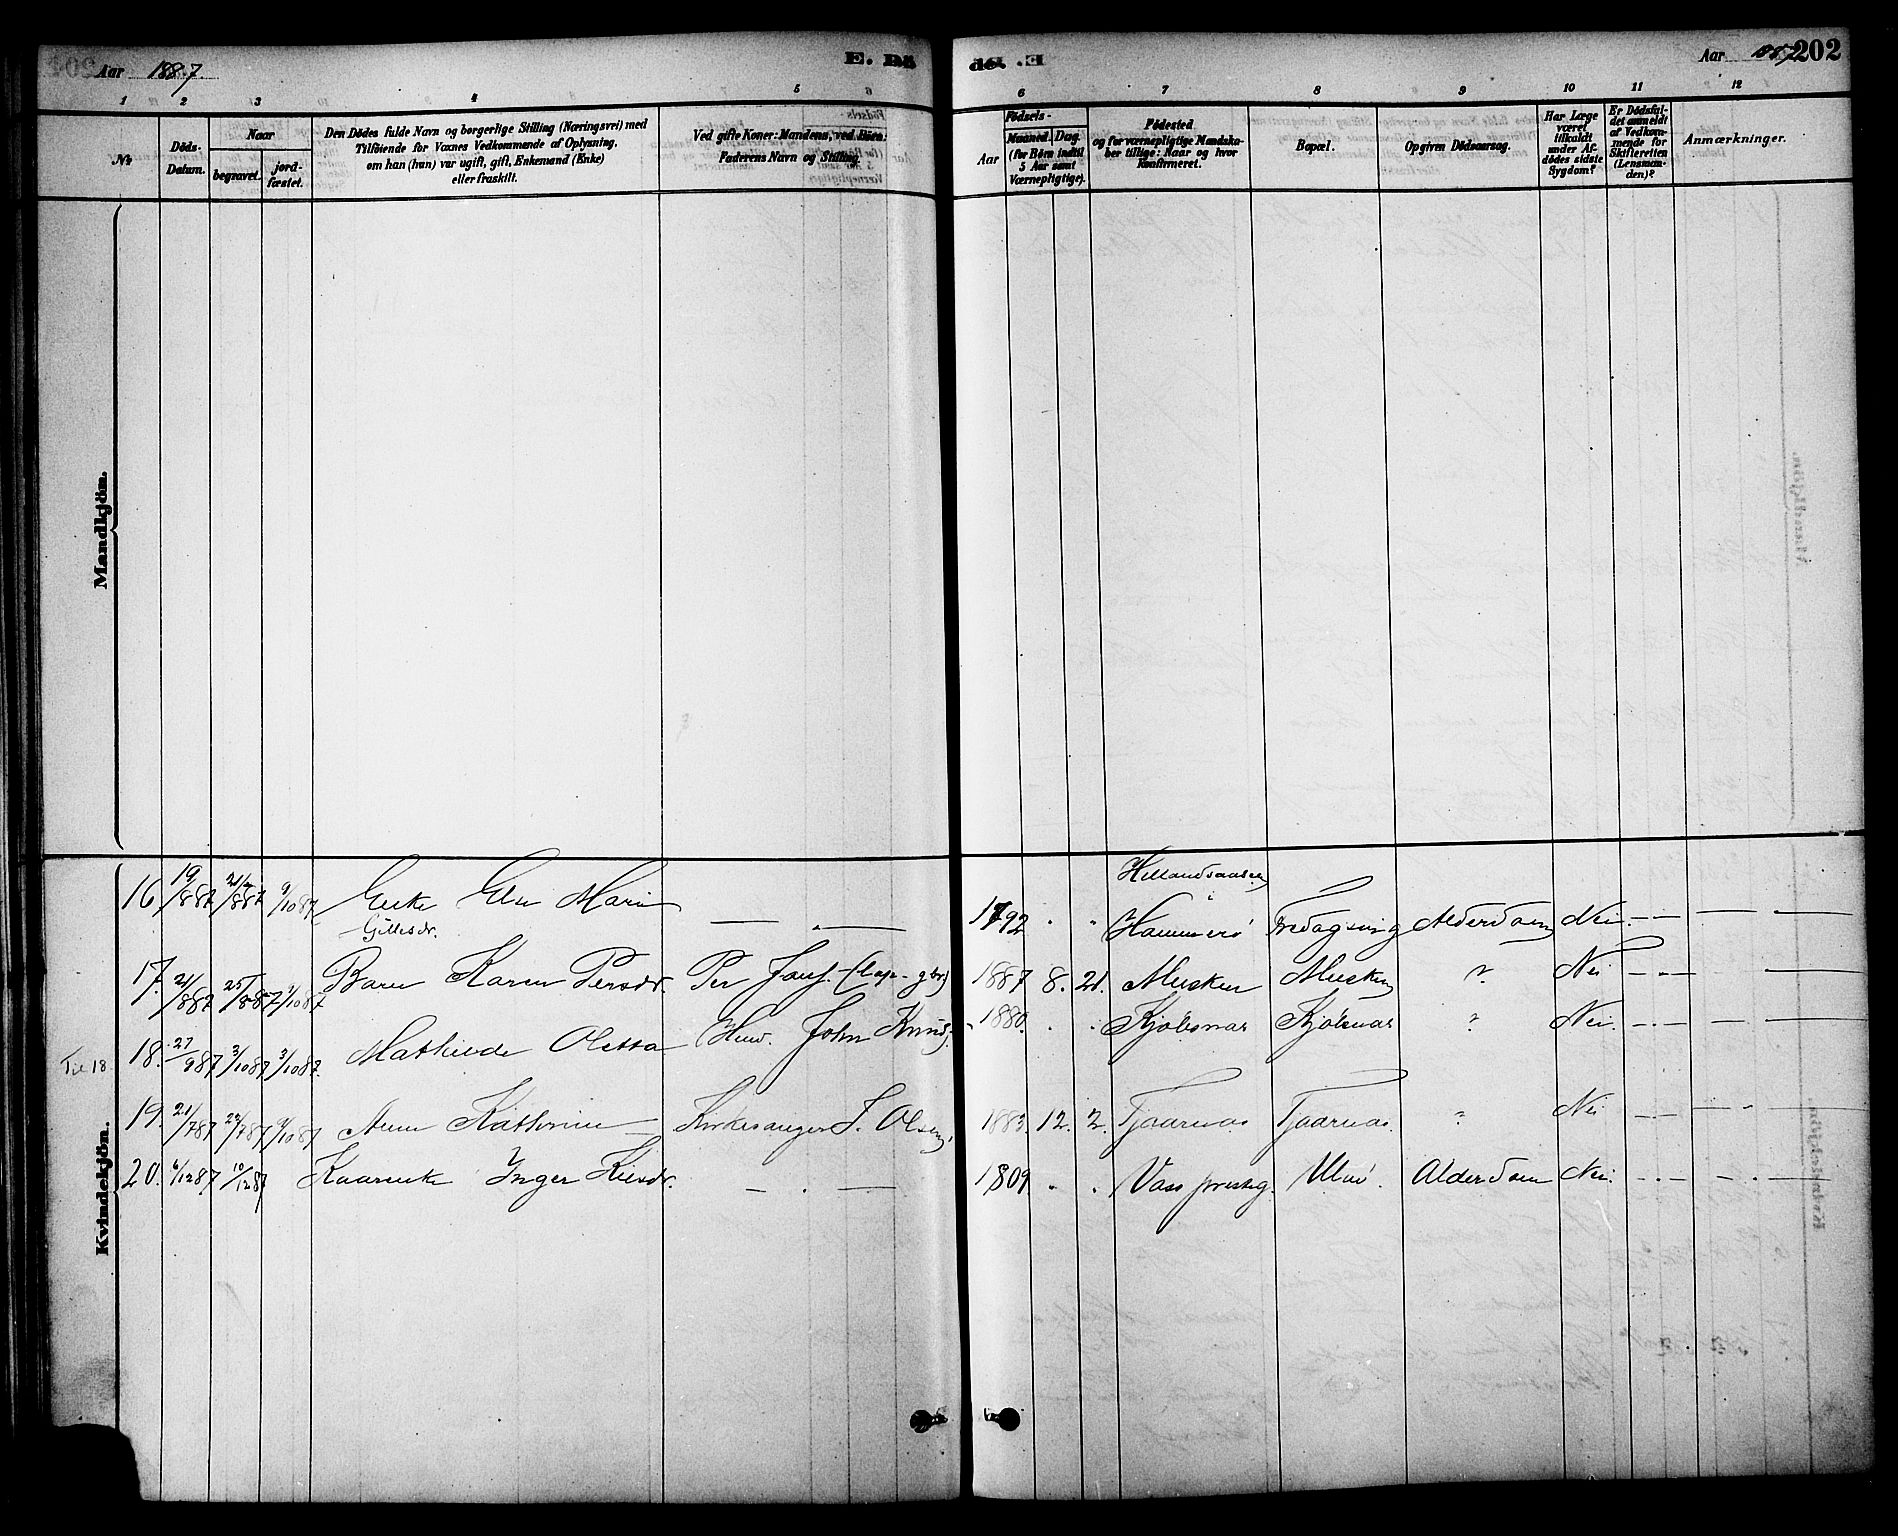 Aar 1887.
E. Dö
de. E.
Aar 1887. 202
1 2 3 4 5 6
6 7 8 9 10 11 12
No
Döds-Datum.
Naar
begravet.
jord-fæstet.
Den Dödes fulde Navn og borgerlige Stilling (Næringsvei) med
Tilföiende for Voxnes Vedkommende af Oplysning,
om han (hun) var ugift, gift, Enkemand (Enke)
eller fraskilt.
Ved gifte Koner: Mandens, ved Börn:
Faderens Navn og Stilling.
Födsels-
Aar
Maaned. Dag.
(for Börn indtil
5 Aar samt
Værnepligtige).
Födested
og for værnepligtige Mandska-
ber tillige: Naar og hvor
Konfirmeret.
Bopæl.
Opgiven Dödsaarsag.
Har Læge
været
tilkaldt
under Af-
dödes sidste
Sygdom?
Er Dödsfal-
det anmeldt
af Vedkom-
mende for
Skifteretten
(Lensman-
den)?
Anmærkninger.
Mandkjön.
Kvindekjön.
16 19/887 9/1087 Enke Else Marie Gillesdr. — . — 1792 . . Hammerö Alderdom Nei
17. 21/887 25/887 Barn Karen Persdr. Per 1887 8. 21. Musken Musken ? Nei
Til 18.
18. 27/987 3/1087 3/1087. Mathilde Oletta John 1880. . . Kjölsnæs Kjölsnæs ? Nei.
19. 21/787 9/1087 Anne Kathrine Kirkesanger Olsen. 1883. 12. 2. Tjaarnæs Tjaarnæs. Nei
20. 6/1287 10/1287 Inger — . — 1809 . . Alderdom Nei.